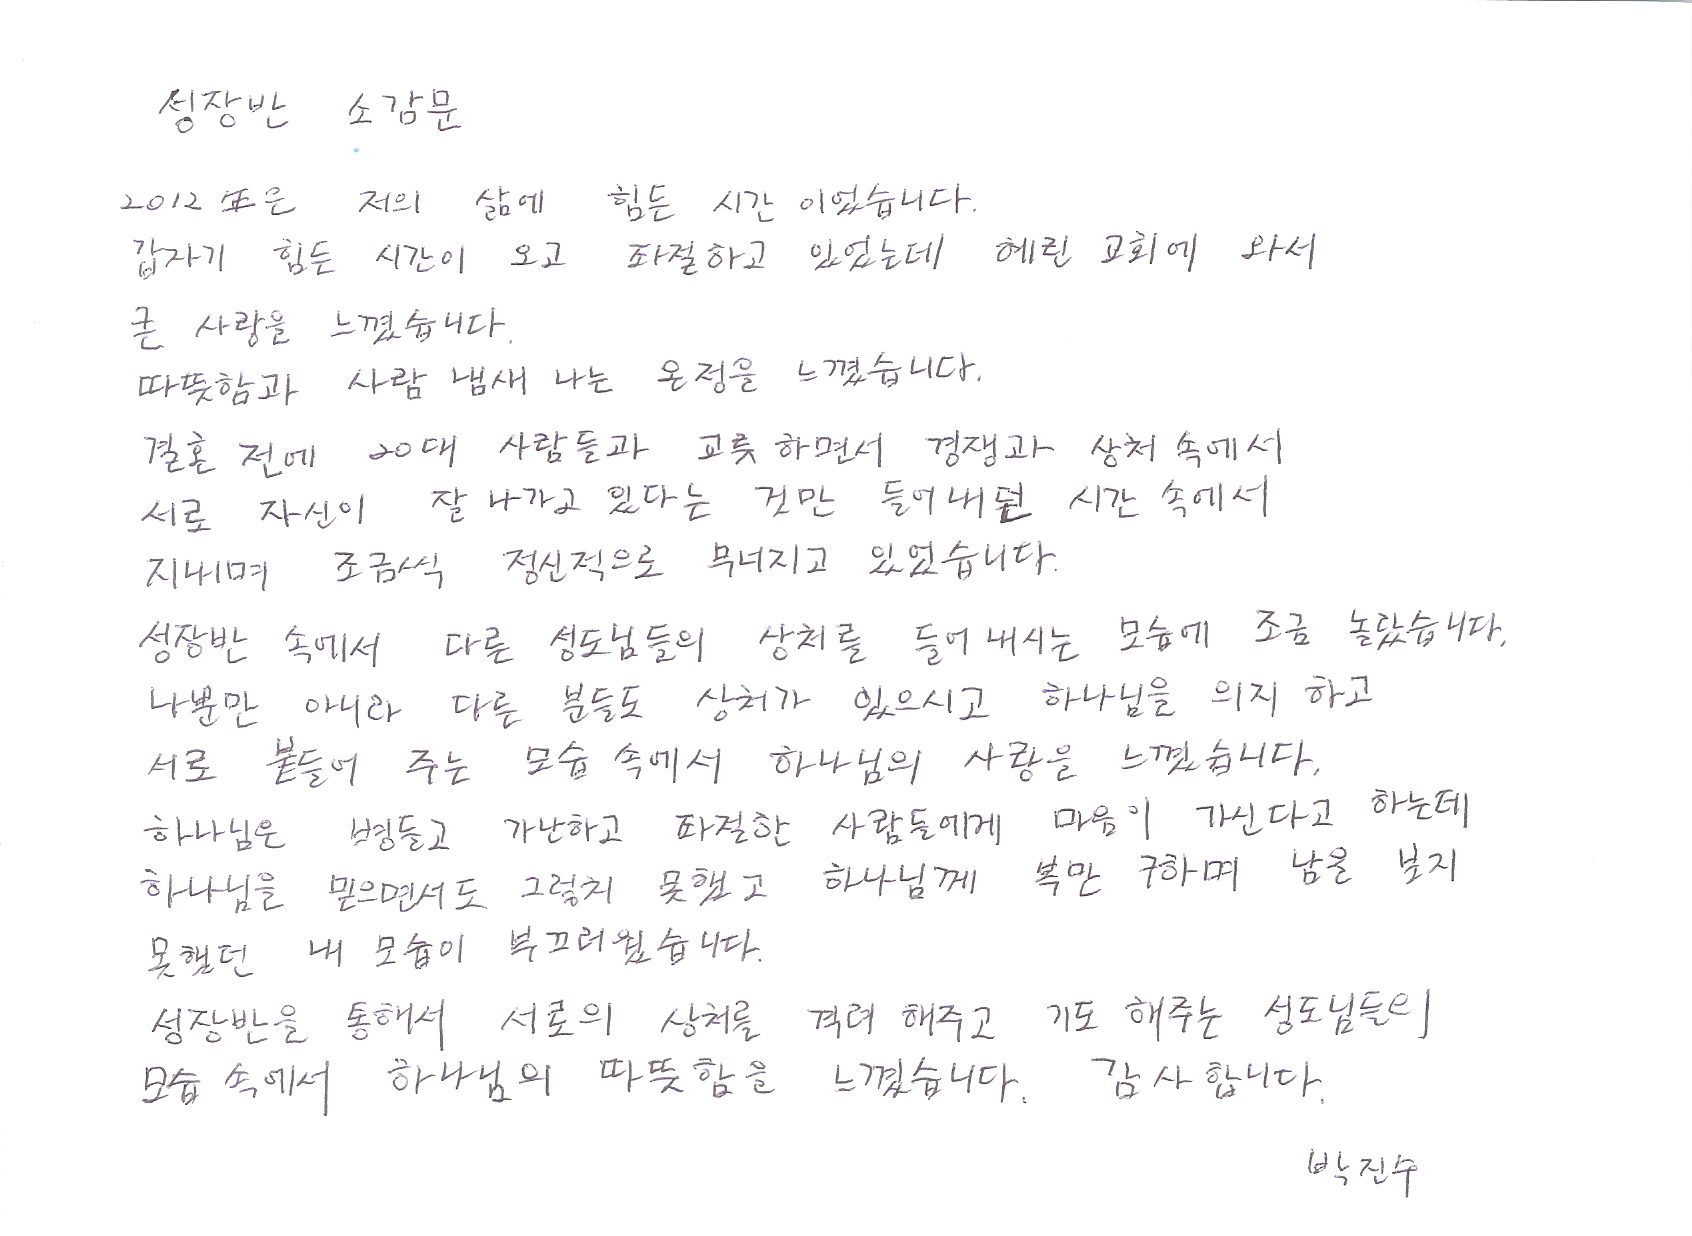 성장반 소감문
2012年은 저의 삶에 힘든 시간 이었습니다.
갑자기 힘든 시간이 오고 좌절하고 있었는데 혜린 교회에 와서
큰 사랑을 느꼈습니다.
따뜻함과 사람 냄새 나는 온정을 느꼈습니다.
결혼 전에 20대 사람들과 교류 하면서 경쟁과 상처 속에서
서로 자신이 잘 나가고 있다는 것만 들어내던 시간 속에서
지내며 조금씩 정신적으로 무너지고 있었습니다.
성장반 속에서 다른 성도님들의 상처를 들어 내시는 모습에 조금 놀랐습니다.
나뿐만 아니라 다른 분들도 상처가 있으시고 하나님을 의지 하고
서로 붙들어 주는 모습 속에서 하나님의 사랑을 느꼈습니다.
하나님은 병들고 가난하고 좌절한 사람들에게 마음이 가신다고 하는데
하나님을 믿으면서도 그렇치 못했고 하나님께 복만 구하며 남을 보지
못했던 내 모습이 부끄러웠습니다.
성장반을 통해서 서로의 상처를 격려 해주고 기도 해주는 성도님들의
모습 속에서 하나님의 따뜻함을 느꼈습니다. 감사합니다.
박진수